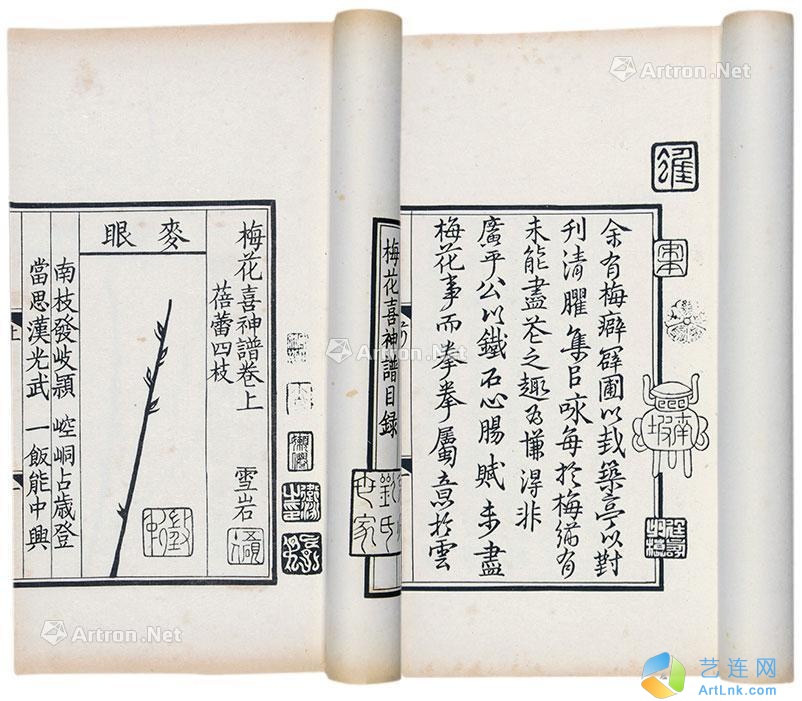 余有梅癖辟圃以栽築亭以對
刊清臞集以咏每於梅猶有
未能盡花之趣為慊得非
廣平公以鐵石心腸賦未盡
梅花事而拳拳屬意於雲
梅花喜神譜目錄
劉氏
世家
梅花喜神譜卷上
雪岩
蓓蕾四枝
麥眼
南枝發岐穎
崆峒占歲登
當思漢光武
一飯能中興
Artron.Net
Artron.Net
Artron.Net
Artron.Net
艺连网
ArtLnk.com